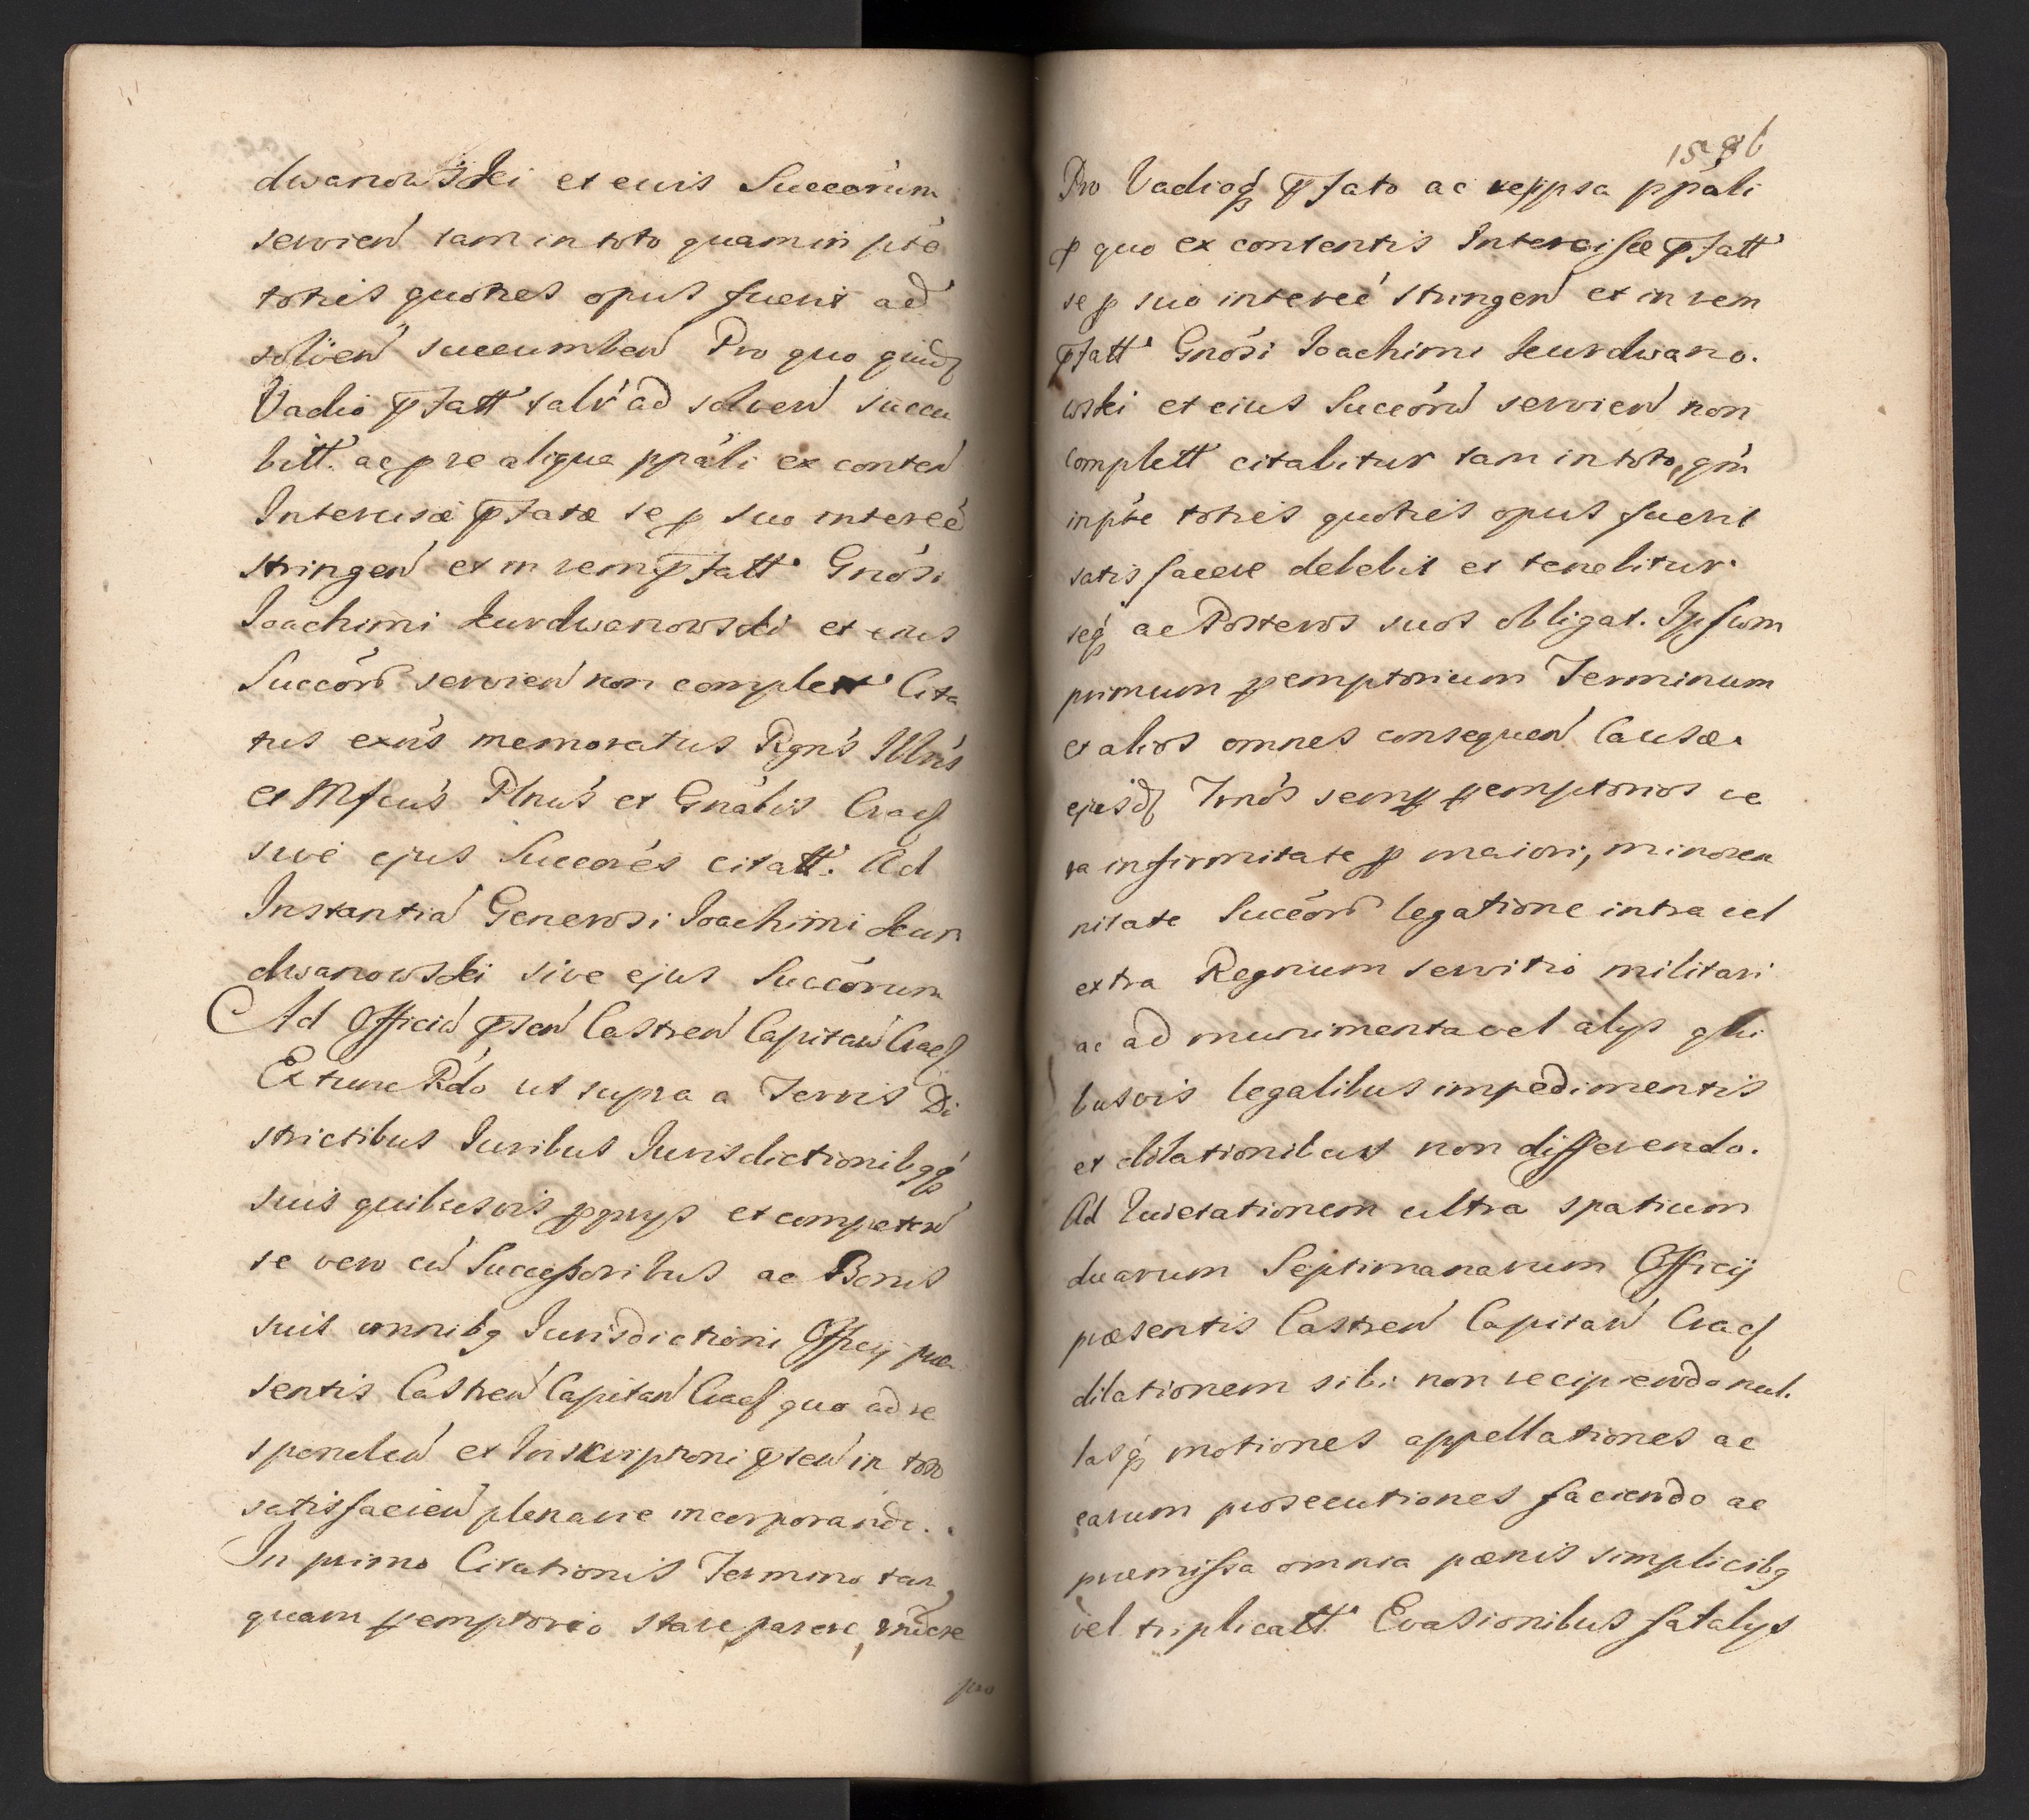 dwanowski et euis Succorum
servien tam in toto quam in pte
toties quoties opus fuerit ad
solven succumben Pro quo quidē
Vadio p̄fatt talr ad solven succu
bitt. ac p re aliqua ppāli ex conten
Intercisæ p̄fatæ se p suo intereē
stringen et in rem p̄fatt Gnosi
Joachimi Kurdwanowski et eius
Succōr servien non complett Cita
tus exn̄s memoratus Rgn̄s Illn̄s
et Mfcus Plnus et Gnalis Cracẜ
sive ejus Succores citatt. Ad
Instantia Generosi Joachimi Kur
dwanowski sive ejus Succorum
Ad Officiū p̄sen Castren Capitan Cracẜ
Ex tunc Rdō ut supra a Terris Di
strictibus Juribus Jurisdictionibqq̄
suis quibusvis pprys et competen
se vero cū Successoribus ac Bonis
suis omnibq Jurisdictioni Officij præ
sentis Castren Capitan Cracẜ quo ad re
sponden et Inscriptioni p̄sen in toto
satisfacien plenarie incorporando.
In primo Citationis Termino tan
quam peremptorio stare parere,
pro
1586
Pro Vadioq̄ p̄fato ac re ipsa ppāli
p quo ex contentis Intercisæ p̄fatt
se p suo intereē stringen et in rem
p̄fatt Gnosi Joachimi Kurdwano.
wski et eius Succorū servien non
complett citabitur tam in toto, qm̄
in pte toties quoties opus fuerit
satisfacere debebit et tenebitur.
seq̄ ac Posteros suos obligat. Ipsum
primum pemptorium Terminum
et alios omnes consequen Causæ
ejusdē Tmos semp pemptorios ve
ra infirmitate p maiori, minoren
nitate Succōr legatione intra vel
extra Regnum servitio militari
ac ad munimenta vel alys qui
busvis legalibus impedimentis
et dilationibus non differendo.
Ad Quietationem ultra spatium
duarum Septimanarum Officij
præsentis Castren Capitan Cracẜ
dilationem sibi non recipiendo nul.
lasq̄ motiones appellationes ac
earum prosecutiones faciendo ac
præmissa omnia pænis simplicibq
vel triplicatt Evasionibus fatalys